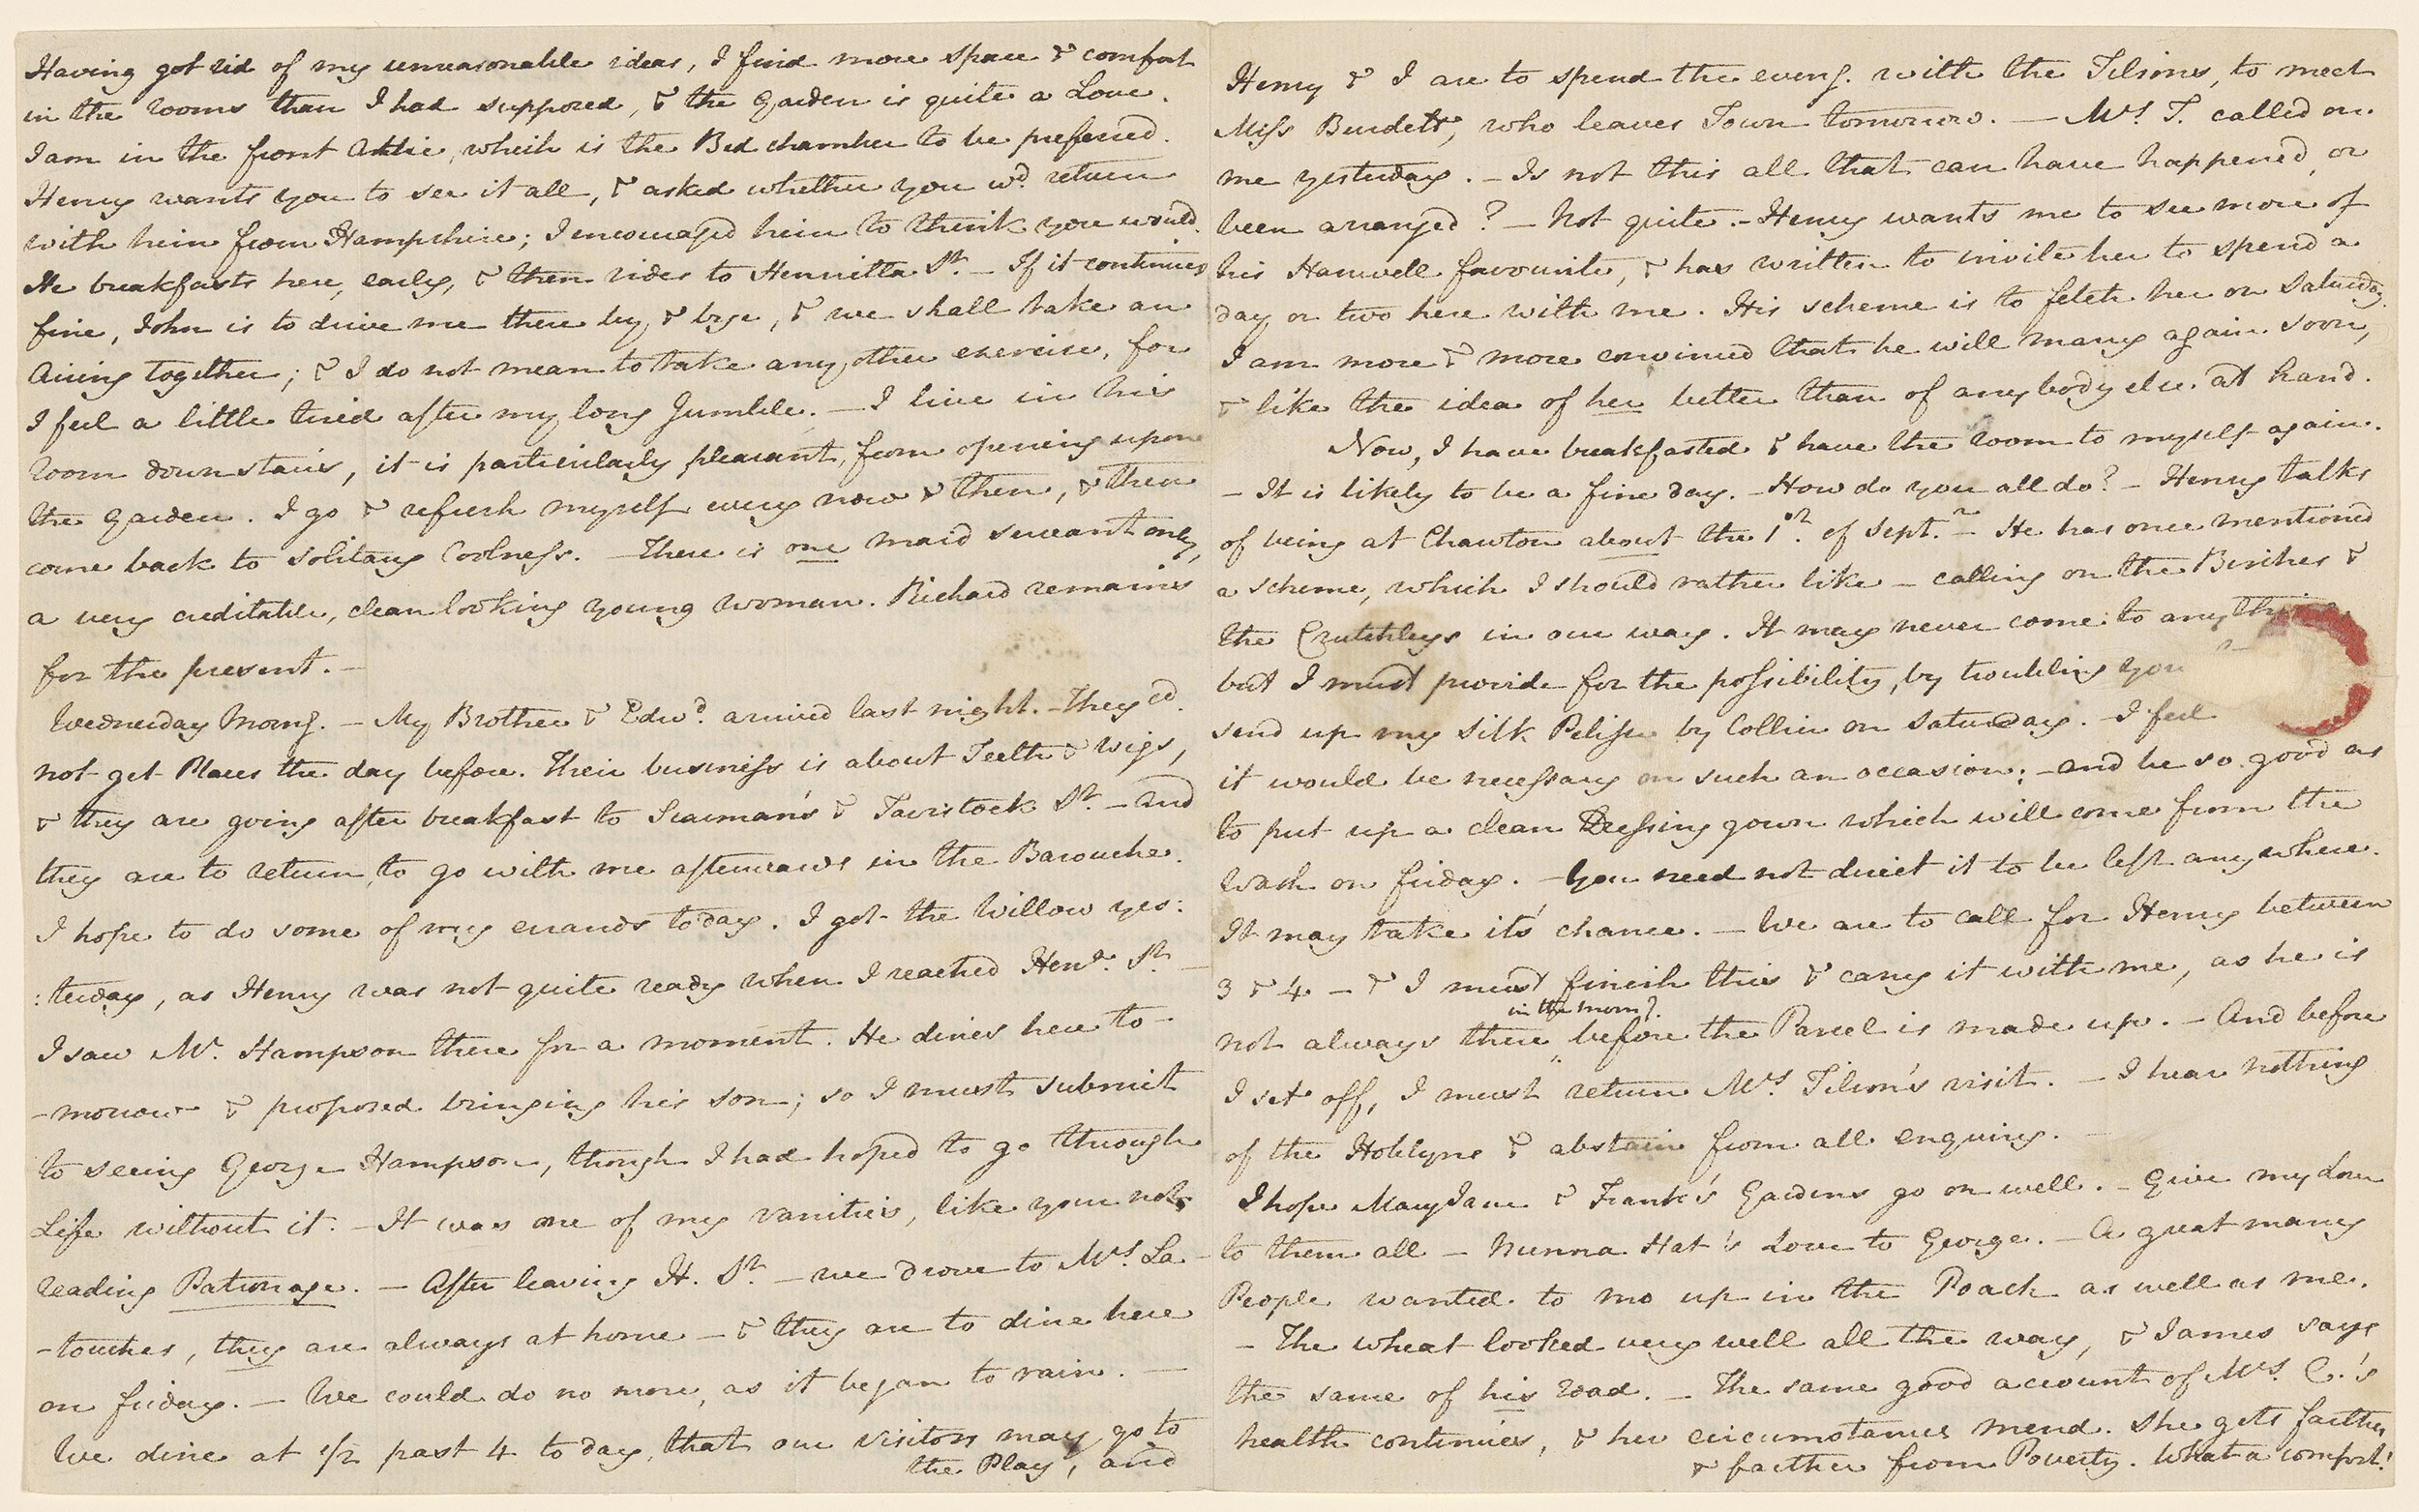 Having got rid of my unreasonable ideas, I find more space & comfort
in the rooms than I had supposed, & the Garden is quite a Love.
I am in the front Attic, which is the Bed chamber to be preferred.
Henry wants you to see it all, & asked whether you wd. return
with him from Hampshire; I encouraged him to think you would.
He breakfasts here, early, & then rides to Henrietta St. — If it continues
fine, John is to drive me there by & bye, & we shall take an
Airing together; & I do not mean to take any other exercise, for
I feel a little tired after my long Jumble. — I live in his
room downstairs, it is particularly pleasant, from opening upon
the garden. I go & refresh myself every now & then, & then
come back to Solitary Coolness. — There is one maid servant only,
a very creditable, cleanlooking young woman. Richard remains
for the present. —
Wednesday Morng. — My Brother & Edwd. arrived last night. — They cd.
not get Places the day before. Their business is about Teeth & Wigs,
& they are going after breakfast to Scarman's & Tavistock St. — and
they are to return to go with me afterwards in the Barouche.
I hope to do some of my errands today. I got the Willow yes:
:terday, as Henry was not quite ready when I reached Hena. St. —
I saw Mr. Hampson there for a moment. He dines here to
-morrow & proposed bringing his son; so I must submit
to seeing George Hampson, though I had hoped to go through
Life without it. — It was one of my vanities, like your not
reading Patronage. — After leaving H. St. — we drove to Mrs. La-
-touches, they are always at home — & they are to dine here
on friday. — We could do no more, as it began to rain. —
We dine at 1/2 past 4 to day, that our visitors may go to
the Play, and
Henry & I are to spend the eveng. with the Tilsons, to meet
Miss Burdett, who leaves Town tomorrow. — Mrs. T. called on
me yesterday. — Is not this all that can have happened, or
been arranged? — Not quite. — Henry wants me to see more of
his Hanwell favourite, & has written to invite her to spend a
day or two here with me. His scheme is to fetch her on Saturday.
I am more & more convinced that he will marry again soon,
& like the idea of her better than of any body else at hand.
Now, I have breakfasted & have the room to myself again.
— It is likely to be a fine day. — How do you all do? — Henry talks
of being at Chawton about the 1st. of Septr. — He has once mentioned
a scheme, which I should rather like — calling on the Birches &
the Crutchleys in our way. It may never come to anything
but I must provide for the possibility, by troubling you
send up my Silk Pelisse by Collier on Saturday. — I feel
it would be necessary on such an occasion; — and be so good as
to put up a clean Dressing gown which will come from the
Wash on friday. — You need not direct it to be left anywhere.
It may take it's chance. — We are to call for Henry between
3 & 4 — & I must finish this & carry it with me, as he is
not always there in the morng. before the Parcel is made up. — And before
I set off, I must return Mrs. Tilson's visit. — I hear nothing
of the Hoblyns & abstain from all enquiry. —
I hope Mary Jane & Frank's Gardens go on well. — Give my love
to them all — Nunna Hat's Love to George. — A great many
People wanted to mo up in the Poach as well as me.
— The wheat looked very well all the way, & James says
the same of his road. — The same good account of Mrs. C.'s
health continues, & her circumstances mend. She gets farther
& farther from Poverty. What a comfort!